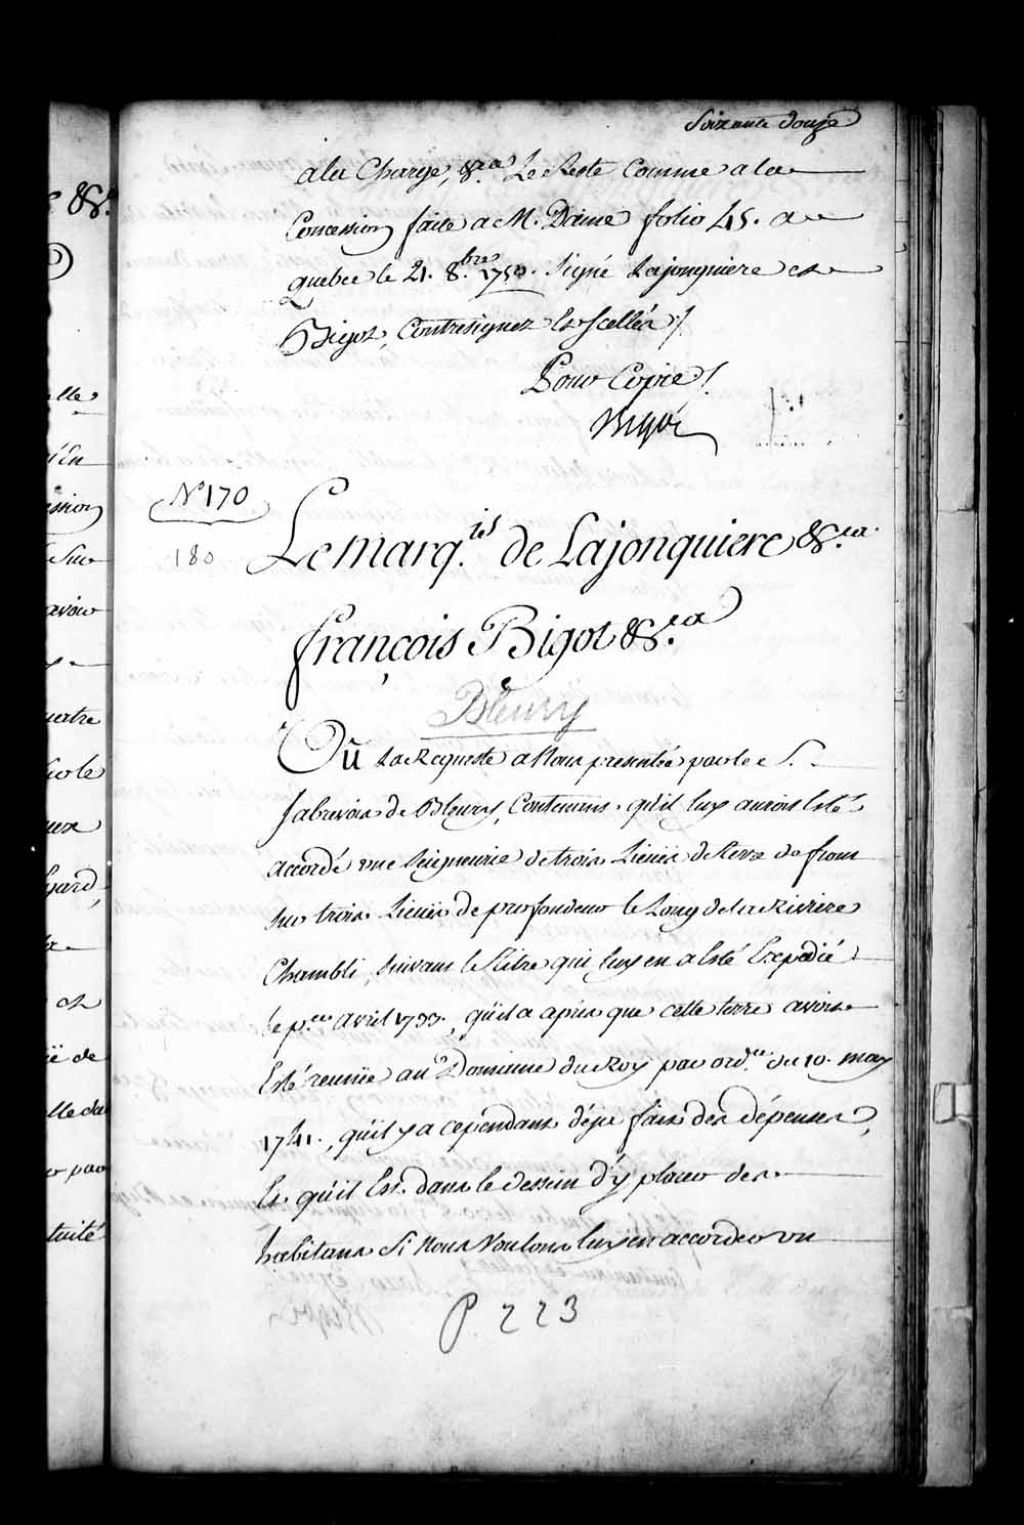 Soixante douze
a la Charge, &ca Le Reste Comme a la
Concession faite a M. Daine folio 45. a
quebec le 21. 8.bre 1750. Signé Lajonquiere et
Bigot, Contresignez Et scellés ./.
Pour Copie ./.
Bigot
N.o 170
180
Le Marq.is de Lajonquiere &.ca
françois Bigot &.ca
Bleury
Vû La Requeste a Nous presentée par le S.
Sabrevois de Bleury, Contenant qu'il luy auroit Esté
accordé une Seigneurie de trois Lieues de terre de front
sur trois Lieues de profondeur le Long de la Riviere
Chambli, suivant le Titre qui luy en a Esté Expedié
le p.er avril 1733., qu'il a apris que cette terre avoit
Esté reunie au Domaine du Roy par ord.ce du 10. may
1741., qu'il y a cependant déja fait des dépenses,
Et qu'il Est dans le dessein d'y placer des
habitans Si Nous Voulons luy en accorder un
P. 223
lle
ession
Sur
avoir
uertre
gard,
et
de
par
tuité